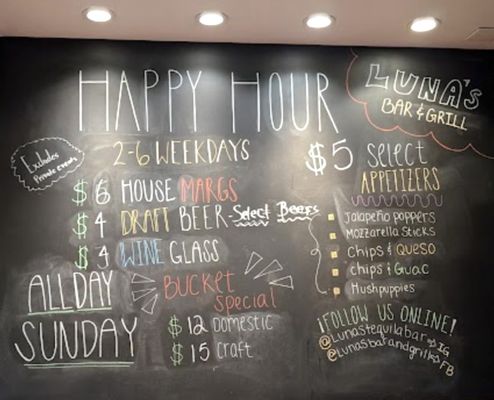 HAPPY HOUR
LUNA'S
BAR & GRILL
Excludes
Private events
2-6 WEEKDAYS
$6 HOUSE MARGS
$4 DRAFT BEER - Select Beers
$4 WINE GLASS
ALL DAY
SUNDAY
BUCKET
special
$12 DOMESTIC
$15 CRAFT
$5 select
APPETIZERS
Jalapeño poppers
Mozzarella Sticks
Chips & Queso
chips & Guac
Hushpuppies
¡FOLLOW US ONLINE!
@Lunastequilabar → IG
@Lunasbarandgrill → FB